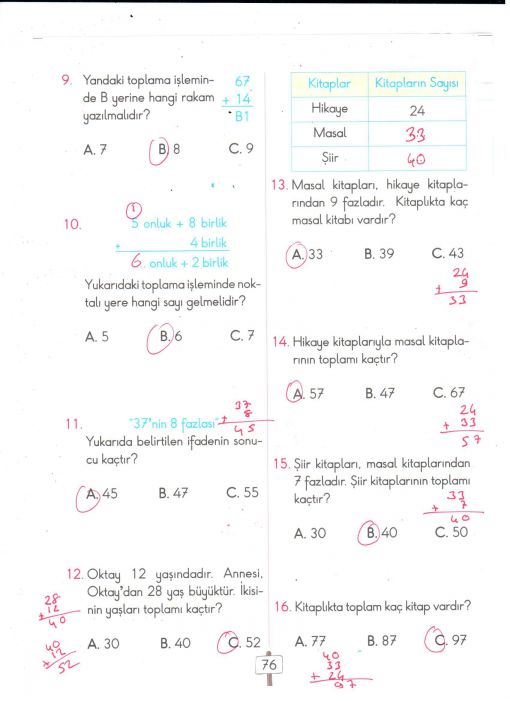 9. Yandaki toplama işlemin-
de B yerine hangi rakam
yazılmalıdır?
67
+ 14
B1
A. 7 B. 8 C. 9
10.
1
5 onluk + 8 birlik
+ 4 birlik
6. onluk + 2 birlik
Yukarıdaki toplama işleminde nok-
talı yere hangi sayı gelmelidir?
A. 5 B. 6 C. 7
11. "37'nin 8 fazlası"
37
+ 8
45
Yukarıda belirtilen ifadenin sonu-
cu kaçtır?
A. 45 B. 47 C. 55
12. Oktay 12 yaşındadır. Annesi,
Oktay'dan 28 yaş büyüktür. İkisi-
nin yaşları toplamı kaçtır?
28
+ 12
40
40
12
+
52
A. 30 B. 40 C. 52
Kitaplar Kitapların Sayısı
Hikaye 24
Masal 33
Şiir 40
13. Masal kitapları, hikaye kitapla-
rından 9 fazladır. Kitaplıkta kaç
masal kitabı vardır?
A. 33 B. 39 C. 43
24
+ 9
33
14. Hikaye kitaplarıyla masal kitapla-
rının toplamı kaçtır?
A. 57 B. 47 C. 67
24
+ 33
57
15. Şiir kitapları, masal kitaplarından
7 fazladır. Şiir kitaplarının toplamı
kaçtır?
33
+ 7
40
A. 30 B. 40 C. 50
16. Kitaplıkta toplam kaç kitap vardır?
A. 77 B. 87 C. 97
40
33
+ 24
97
76